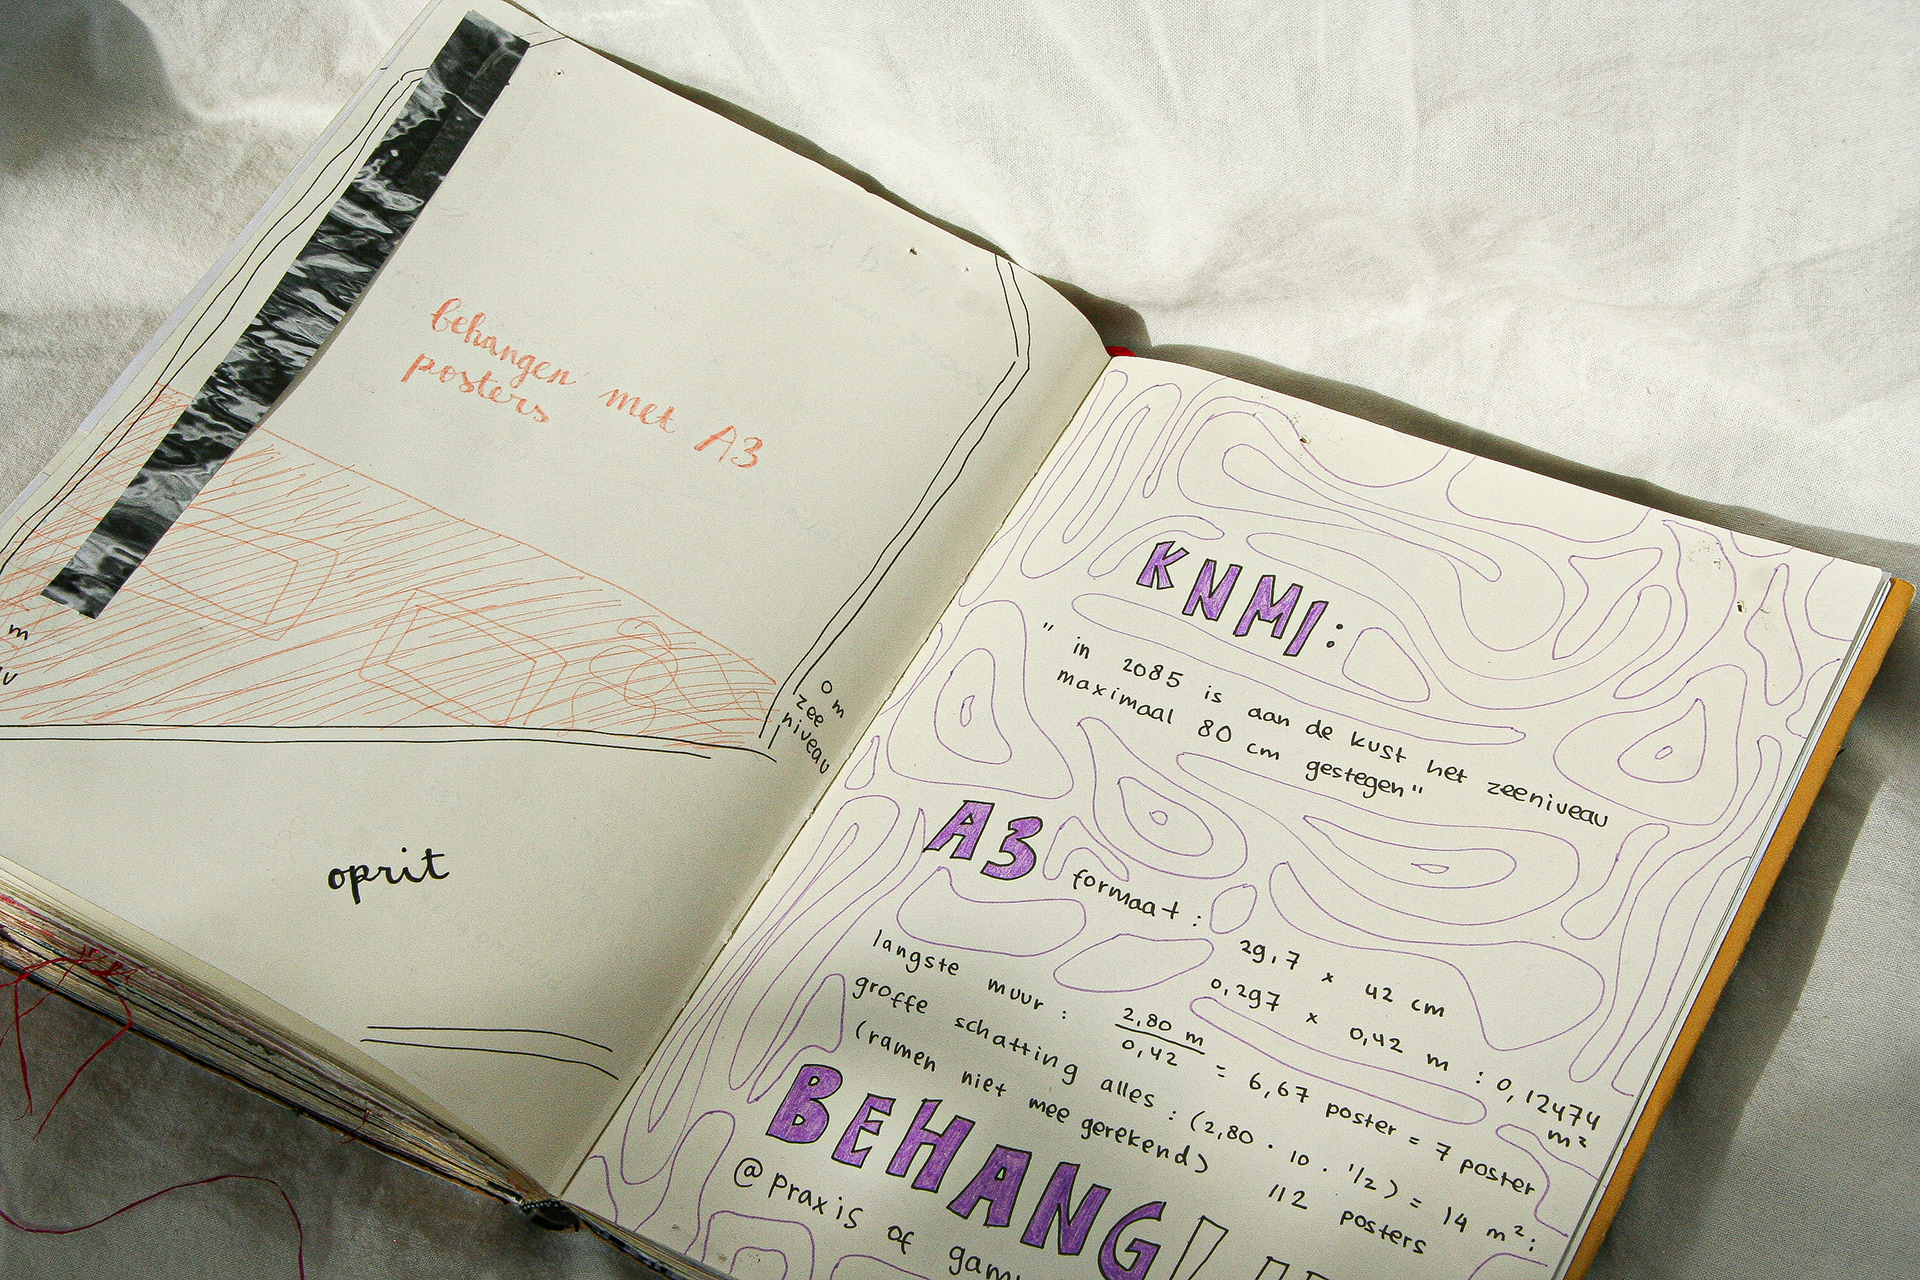 behangen met A3
posters
m
0 m
zee
niveau
oprit
KNMI:
"in 2085 is aan de kust het zeeniveau
maximaal 80 cm gestegen"
A3 formaat :
29,7 x 42 cm
0,297 x 0,42 m : 0,12474
m²
langste muur : 2,80 m / 0,42 = 6,67 poster = 7 poster
groffe schatting alles : (2,80 · 10 · 1/2) = 14 m² :
(ramen niet mee gerekend) 112 posters
BEHANG!
@ praxis of